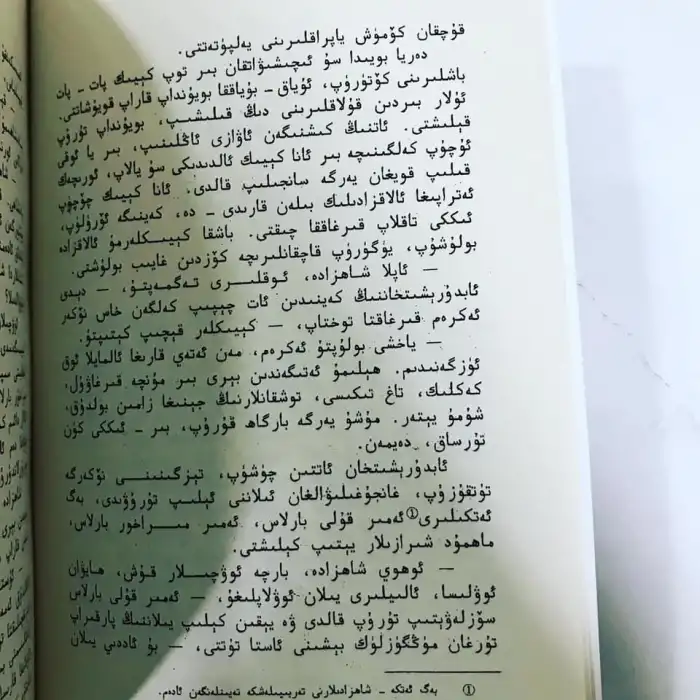 قۇچقان كۆمۈش ياپراقلىرىنى يەلپۈتەتتى.
دەريا بويىدا سۇ ئىچىشىۋاتقان بىر توپ كېيىك پات - پات
باشلىرىنى كۆتۈرۈپ، ئۇياق - بۇياققا بويۇنداپ قاراپ قويۇشاتتى.
ئۇلار بىردىن قۇلاقلىرىنى دىڭ قىلىشىپ، بويۇنداپ تۇرۇپ
قېلىشتى. ئاتنىڭ كىشنىگەن ئاۋازى ئاڭلىنىپ، بىر يا ئوقى
ئۇچۇپ كەلگىنىچە بىر ئانا كېيىك ئالدىدىكى سۇ يالاپ، ئورىچەك
قىلىپ قويغان يەرگە سانجىلىپ قالدى. ئانا كېيىك چۆچۈپ
ئەتراپىغا ئالاقزادىلىك بىلەن قارىدى - دە، كەينىگە ئۆرۈلۈپ،
ئىككى تاقلاپ قىرغاققا چىقتى. باشقا كېيىكلەرمۇ ئالاقزادە
بولۇشۇپ، يۈگۈرۈپ قاچقانلىرىچە كۆزدىن غايىب بولۇشتى.
— ئاپلا شاھزادە، ئوقلىرى تەگمەپتۇ، — دېدى
ئابدۇرېشىتخاننىڭ كەينىدىن ئات چېپىپ كەلگەن خاس نۆكەر
ئەكرەم قىرغاقتا توختاپ، — كېيىكلەر قېچىپ كېتىپتۇ.
— ياخشى بولۇپتۇ ئەكرەم، مەن ئەتەي قارىغا ئالمايلا ئوق
ئۈزگەنىدىم. ھېلىمۇ ئەتىگەندىن بېرى بىر مۇنچە قىرغاۋۇل،
كەكلىك، تاغ تىكىسى، توشقانلارنىڭ جېنىغا زامىن بولدۇق،
شۇمۇ يېتەر. مۇشۇ يەرگە بارگاھ قۇرۇپ، بىر - ئىككى كۈن
تۇرساق، دەيمەن.
ئابدۇرېشىتخان ئاتتىن چۈشۈپ، تىزگىنىنى نۆكەرگە
تۇتقۇزۇپ، غانجۇغىلىۋالغان ئىلاننى ئېلىپ تۇرۇۋىدى، بەگ
ئەتكىلىرى① ئەمىر قۇلى بارلاس، ئەمىر مىراخور بارلاس،
ماھمۇد شىرازىلار يېتىپ كېلىشتى.
— ئوھوي شاھزادە، بارچە ئوۋچىلار قۇش، ھايۋان
ئوۋلىسا، ئالىيلىرى يىلان ئوۋلاپلىغۇ، — ئەمىر قۇلى بارلاس
سۆزلەۋېتىپ تۇرۇپ قالدى ۋە يېقىن كېلىپ يىلاننىڭ پارقىراپ
تۇرغان مۈڭگۈزلۈك بېشىنى ئاستا تۇتتى، — بۇ ئادەتىي يىلان
① بەگ ئەتكە - شاھزادىلارنى تەربىيىلەشكە تەيىنلەنگەن ئادەم.